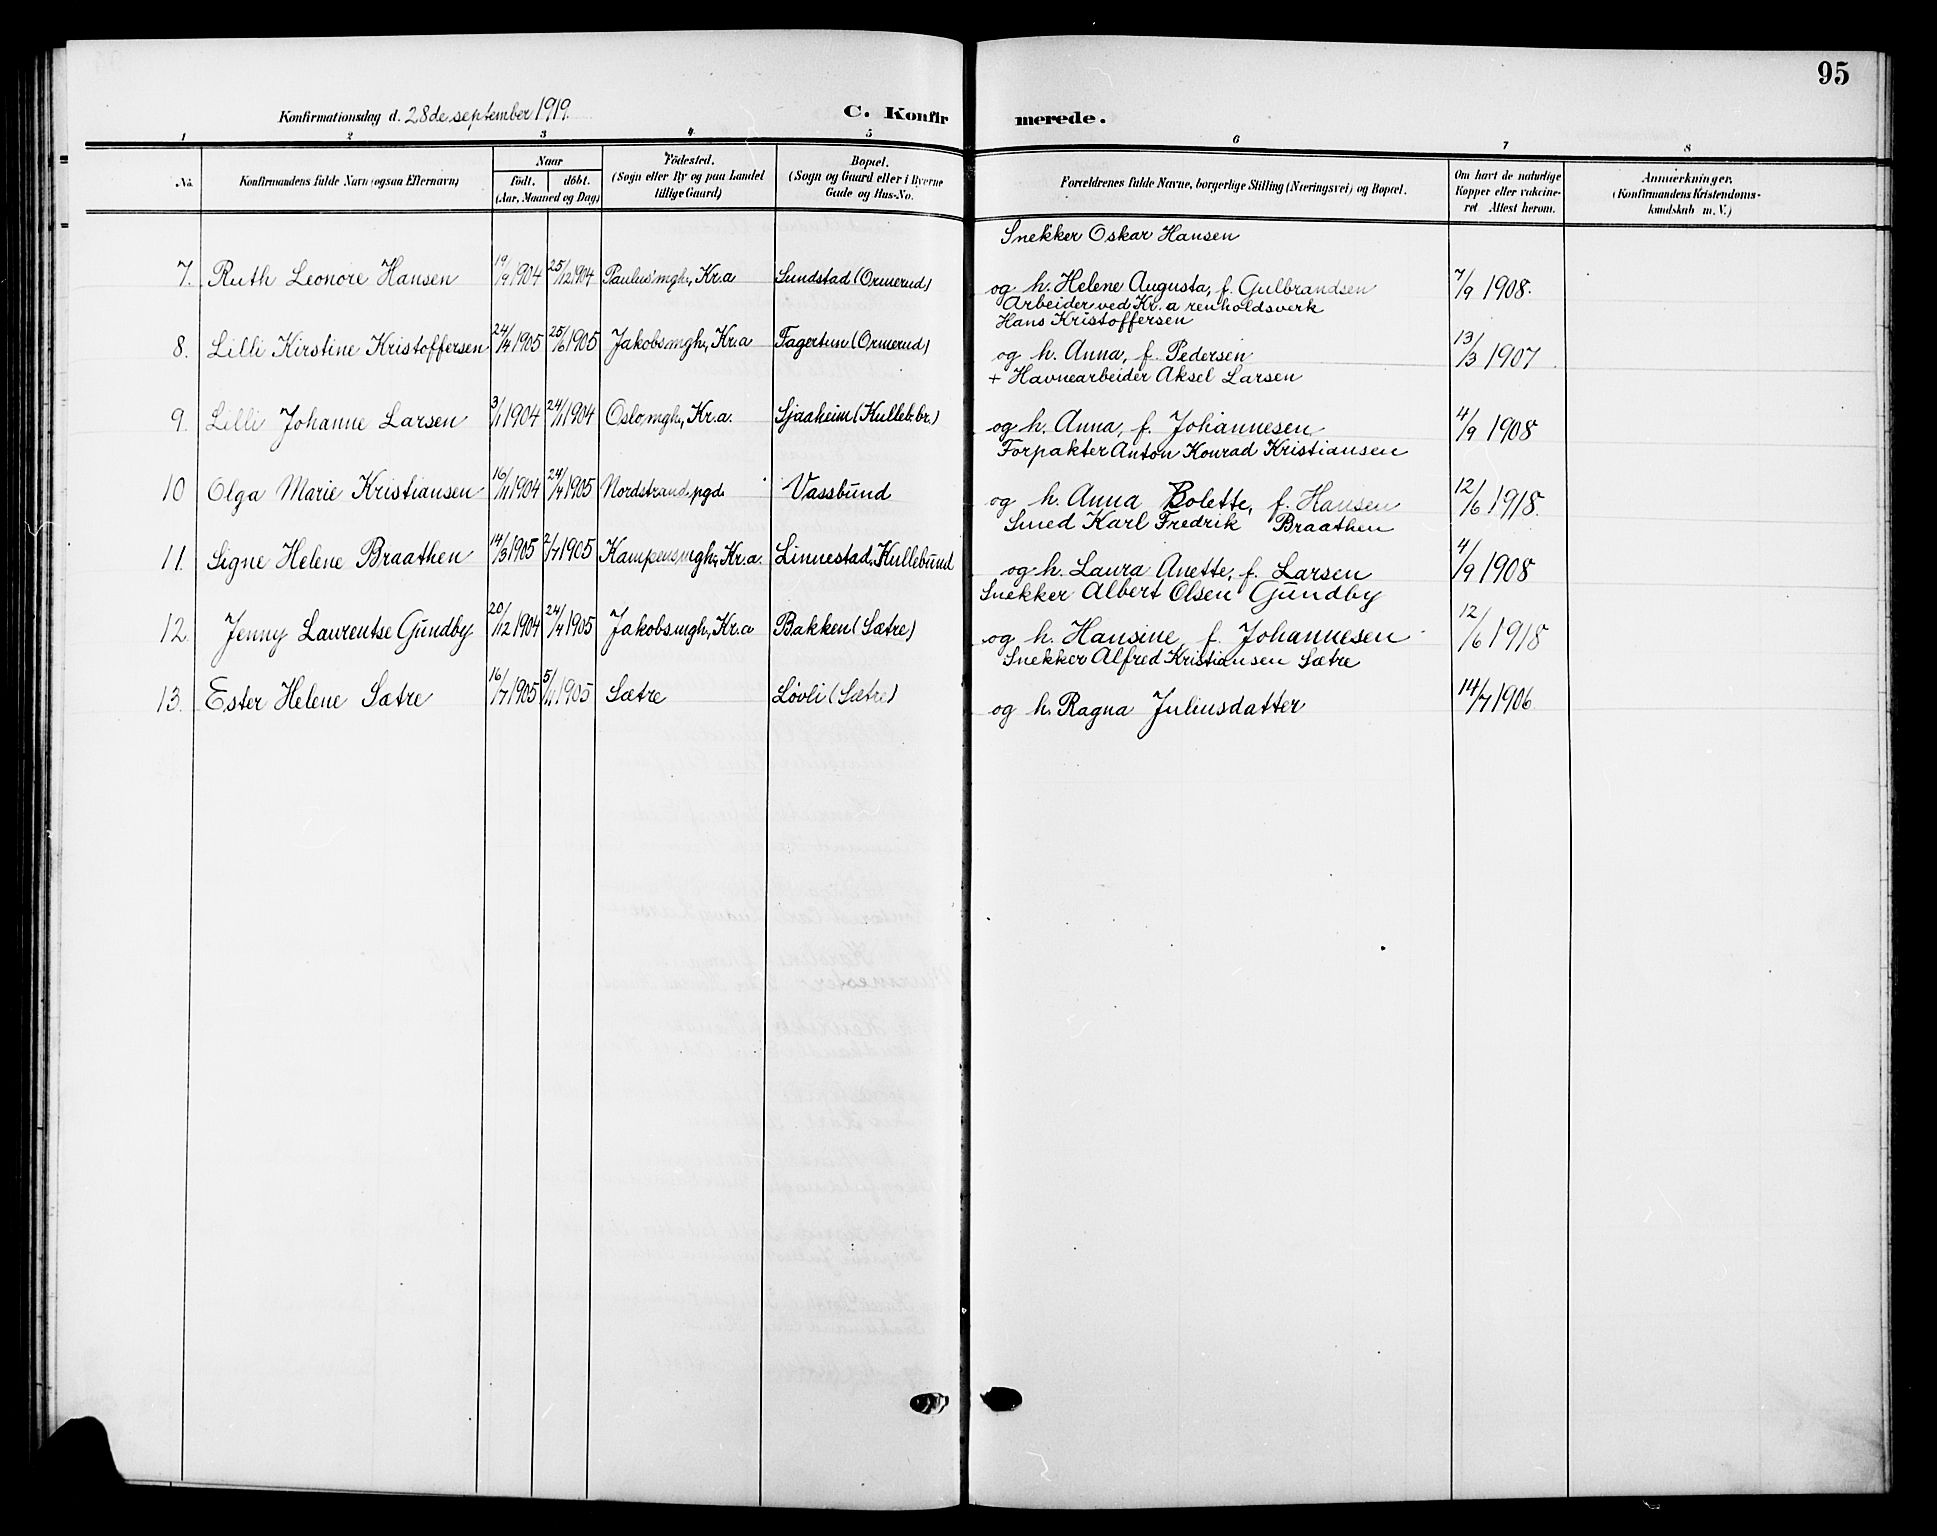 95
Konfirmationsdag d. 28de september 1919.
C. Konfirmerede.
1 2 3 4 5 6 7 8
No.
Konfirmandens fulde Navn (ogsaa Efternavn)
Naar
født. døbt.
(Aar, Maaned og Dag)
Fødested.
(Sogn eller By og paa Landet
tillige Gaard)
Bopæl.
(Sogn og Gaard eller i Byerne
Gade og Hus-No.
Forældrenes fulde Navne, borgerlige Stilling (Næringsvei) og Bopæl.
Om havt de naturlige
Kopper eller vakcine-
ret. Attest herom.
Anmærkninger,
(Konfirmandens Kristendoms-
kundskab m. V.)
Snekker Oskar Hansen
7. Ruth Leonore Hansen 19/9 1904 25/12 1904 Paulus mgh., Kr.a Sundstad (Ormerud) og h. Helene Augusta, f. Gulbrandsen 7/9 1908.
Arbeider ved Kr.a renholdsverk
Hans Kristoffersen
8. Lilli Kirstine Kristoffersen 24/4 1905 25/6 1905 Jakobs mgh., Kr.a Fagertun (Ormerud) og h. Anna, f. Pedersen 13/3 1907
+ Havnearbeider Aksel Larsen
9. Lilli Johanne Larsen 3/11 1904 24/11 1904 Oslo, mgh., Kr.a. Sjaaheim (Kulleb. br.) og h. Anna, f. Johannesen 4/9 1908
Forpakter Anton Konrad Kristiansen
10 Olga Marie Kristiansen 16/11 1904 24/4 1905 Nordstrand, pgd. Vassbund og h. Anna Bolette, f. Hansen 12/6 1918.
Smed Karl Fredrik Braathen
11. Signe Helene Braathen 14/3 1905 2/7 1905 Kampens, mgh., Kr.a. Linnestad, Kullebund og h. Laura Anette, f. Larsen 4/9 1908
Snekker Albert Olsen Gundby
12. Jenny Laurentse Gundby 20/12 1904 24/4 1905 Jakobs mgh., Kr.a Bakken (Sætre) og h. Hansine, f. Johannesen 12/6 1918
Snekker Alfred Kristiansen Sætre
13. Ester Helene Sætre 16/7 1905 5/11 1905 Sætre Løvli (Sætre) og h. Ragna Juliusdatter 14/7 1906